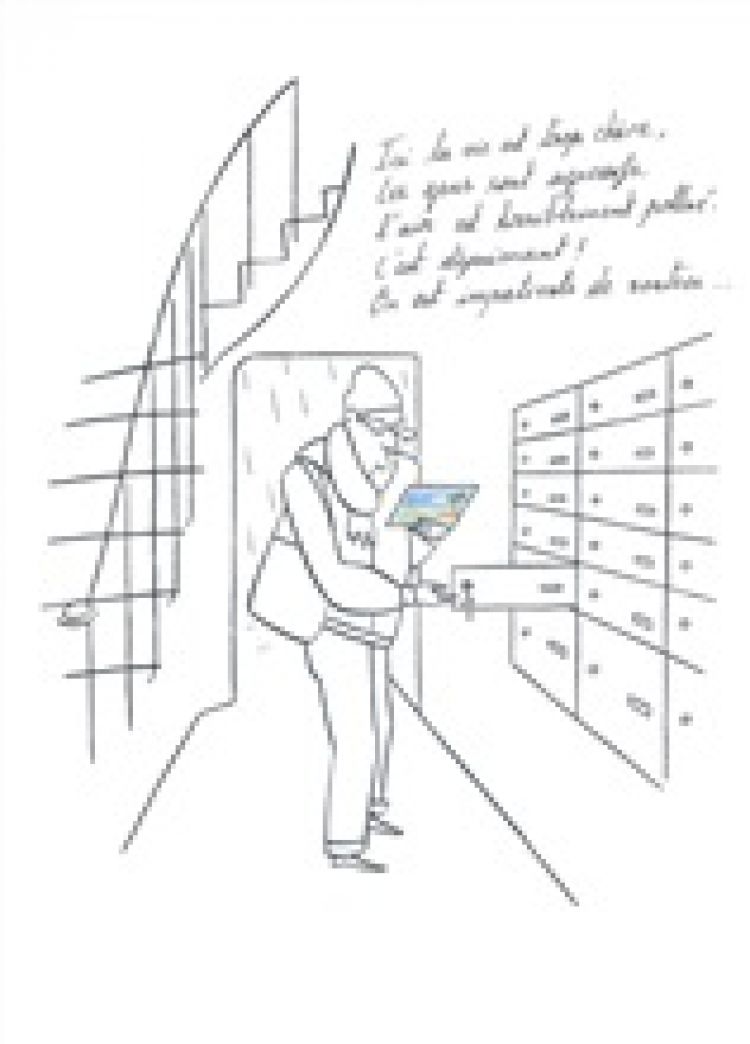 Ici la vie est trop chère.
Les gens sont agressifs.
L'air est horriblement pollué.
C'est déprimant !
On est impatients de rentrer ...